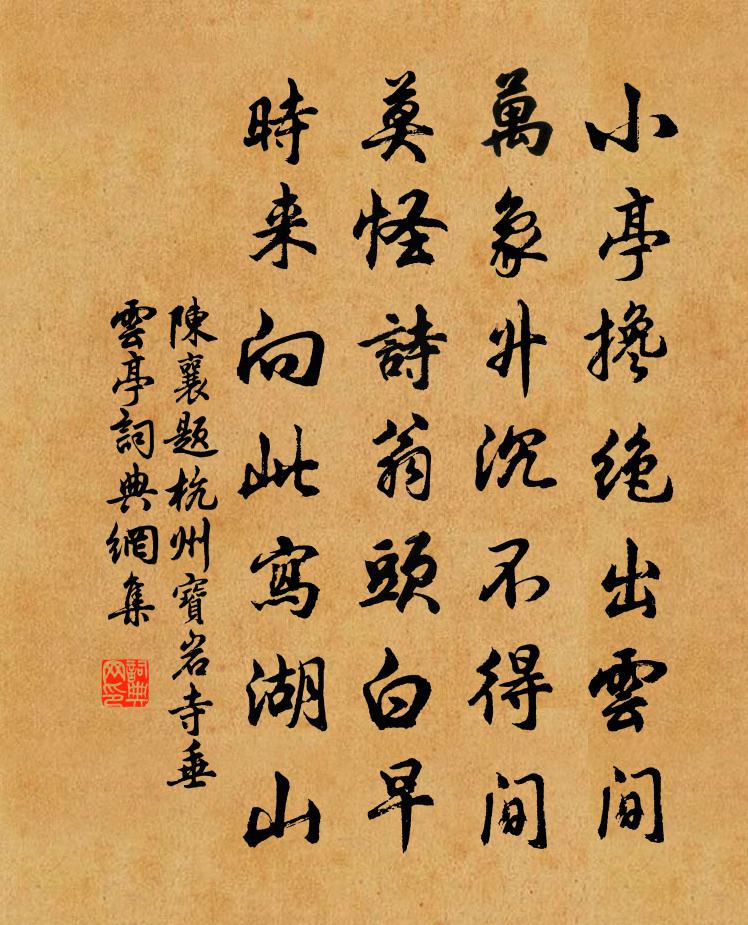 小亭搀绝出雲间
萬象升沉不得间
莫怪詩翁頭白早
時来向此寫湖山
陳襄题杭州寶岩寺垂
雲亭詞典網集
詞典
网印